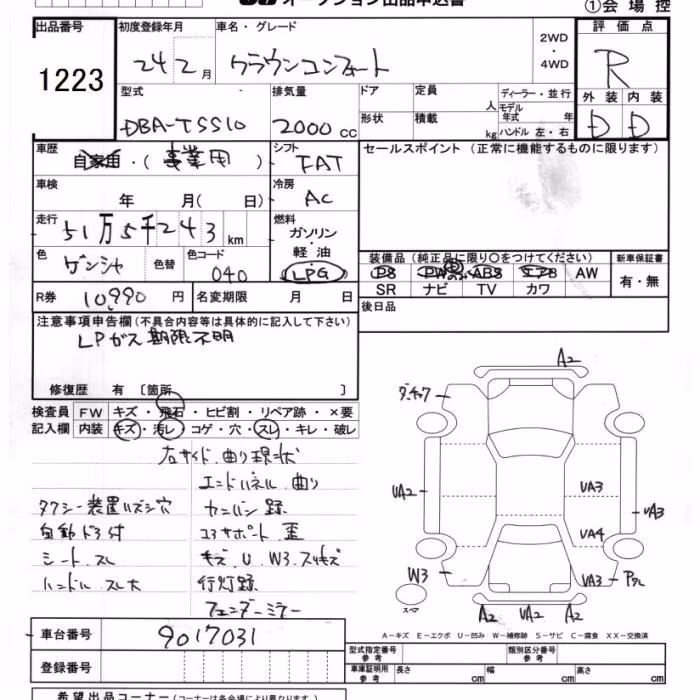 オークション出品申込書
①会場控
出品番号 初度登録年月 車名・グレード 評価点
1223 24 2月 クラウンコンフォート 2WD・4WD R
外装 内装
D D
型式 排気量 ドア 定員 人 ディーラー・並行
DBA-TSS10 2000 CC 形状 積載 kg モデル年式 年
ハンドル 左・右
車歴 シフト セールスポイント（正常に機能するものに限ります）
自家用・（事業用） FAT
車検 年 月（日） 冷房 AC
走行 51万5千243 km 燃料 ガソリン・軽油 LPG
色 ゲンシャ 色替 色コード 040
装備品（純正品に限り○をつけてください） 新車保証書
PS PW ABS エアB AW 有・無
SR ナビ TV カワ
R券 10,990円 名変期限 月 日 後日品
注意事項申告欄（不具合内容等は具体的に記入して下さい）
LPガス期限不明
修復歴 有 〔箇所 〕
検査員 FW キズ・飛石・ヒビ割・リペア跡・×要
記入欄 内装 キズ・汚レ・コゲ・穴・スレ・キレ・破レ
右サイド曲り現状
エンドパネル曲り
タクシー装置ハズシ穴 カンバン跡
自動ドア付 コアサポート歪
シートスレ キズ U W3 スリキズ
ハンドルスレ大 行灯跡
フェンダーミラー
A2
UA2
UA3
UA3
UA4
W3
UA3
スペア
A2 UA2 A2
A－キズ E－エクボ U－凹み W－補修跡 S－サビ C－腐食 XX－交換済
車台番号 9017031
登録番号
型式指定番号 参考 類別区分番号 参考
車庫証明用 参考 長さ cm 幅 cm 高さ cm
希望出品コーナー（コーナーは各会場により異なります）